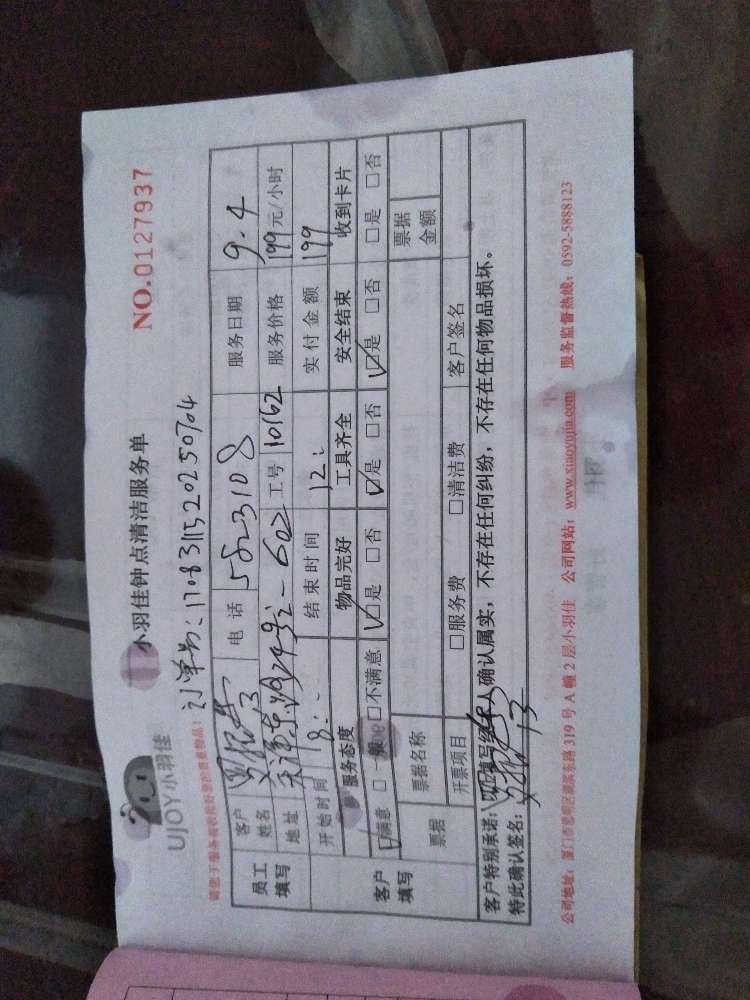 UJOY小羽佳
小羽佳钟点清洁服务单
NO.0127937
订单号:1708311520250704
员工填写
客户姓名 电话 5823108 服务日期 9.4
地址 工号 10162 服务价格 199元/小时
开始时间 结束时间 12: 实付金额 199
客户填写
服务态度 物品完好 工具齐全 安全结束 收到卡片
☑满意 □一般 □不满意 ☑是 □否 ☑是 □否 ☑是 □否 □是 □否
票据 票据名称 票据金额
开票项目 □服务费 □清洁费 客户签名
客户特别承诺: 人确认属实,不存在任何纠纷,不存在任何物品损坏。
特此确认签名:
公司地址:厦门市思明区湖滨东路319号A幢2层小羽佳 公司网站:www.xiaoyujia.com 服务监督热线:0592-5888123